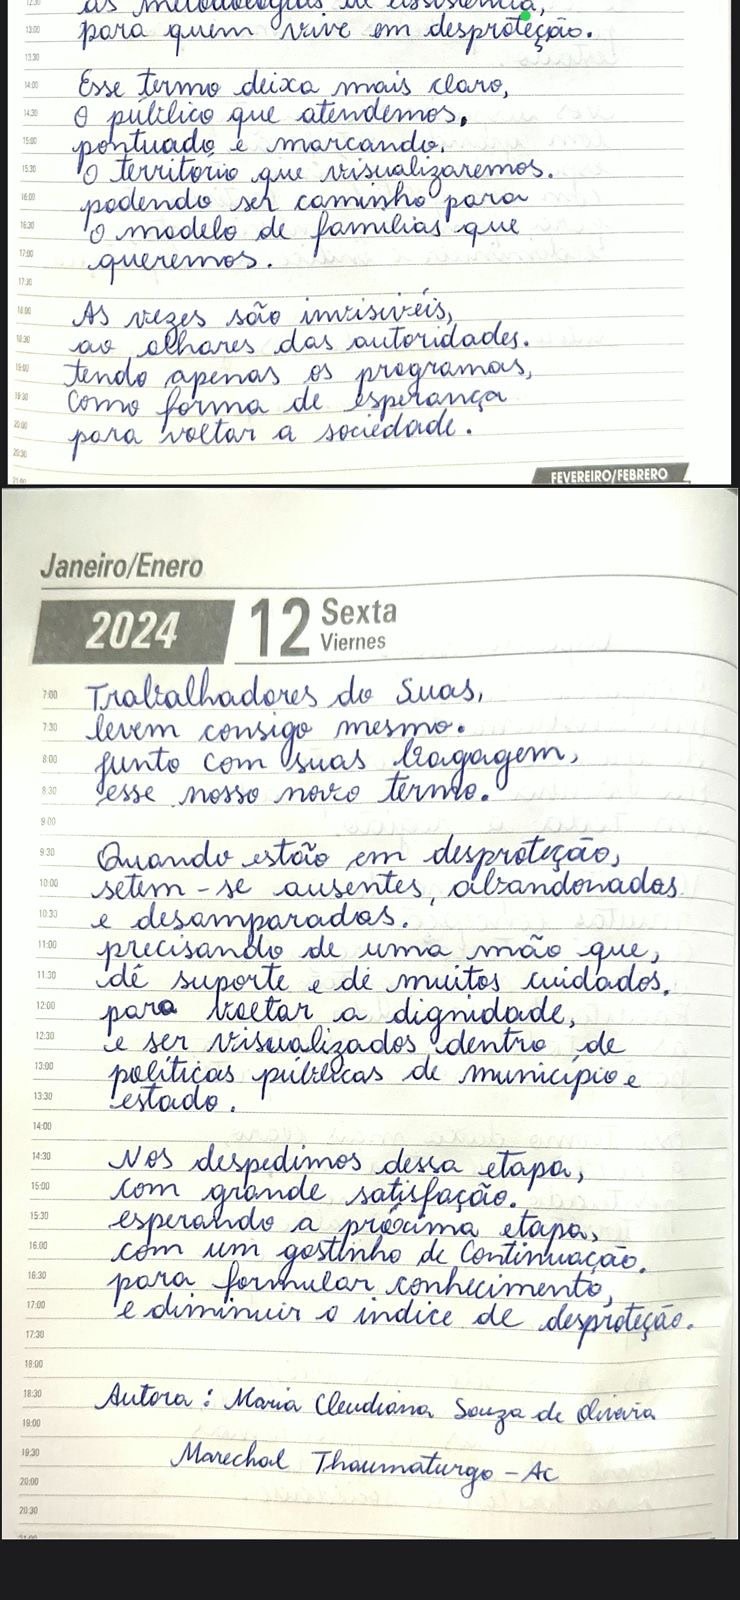 as metodologias de assistência,
para quem vive em desproteção.
Esse termo deixa mais claro,
O público que atendemos.
pontuado e marcando.
O território que visualizaremos.
podendo ser caminho para
O modelo de famílias que
queremos.
As vezes são invisivéis,
ao olhares das autoridades.
tendo apenas os programas,
Como forma de esperança
para voltar a sociedade.
FEVEREIRO/FEBRERO
Janeiro/Enero
2024 12 Sexta
Viernes
7:00 Trabalhadores do Suas,
7:30 levem consigo mesmo.
8:00 junto com suas bagagem,
8:30 esse nosso novo termo.
9:00
9:30 Quando estão em desproteção,
10:00 setem-se ausentes, abandonados
10:30 e desamparados.
11:00 precisando de uma mão que,
11:30 dê suporte e dê muitos cuidados.
12:00 para voltar a dignidade,
12:30 e ser visualizados dentro de
13:00 políticas públicas de município e
13:30 estado.
14:00
14:30 Nos despedimos dessa etapa,
15:00 com grande satisfação.
15:30 esperando a próxima etapa,
16:00 com um gostinho de Continuação.
16:30 para formular conhecimento,
17:00 e diminuir o indice de desproteção.
17:30
18:00
18:30 Autora: Maria Cleudiana Souza de Oliveira
19:00
19:30 Marechal Thaumaturgo - Ac
20:00
20:30